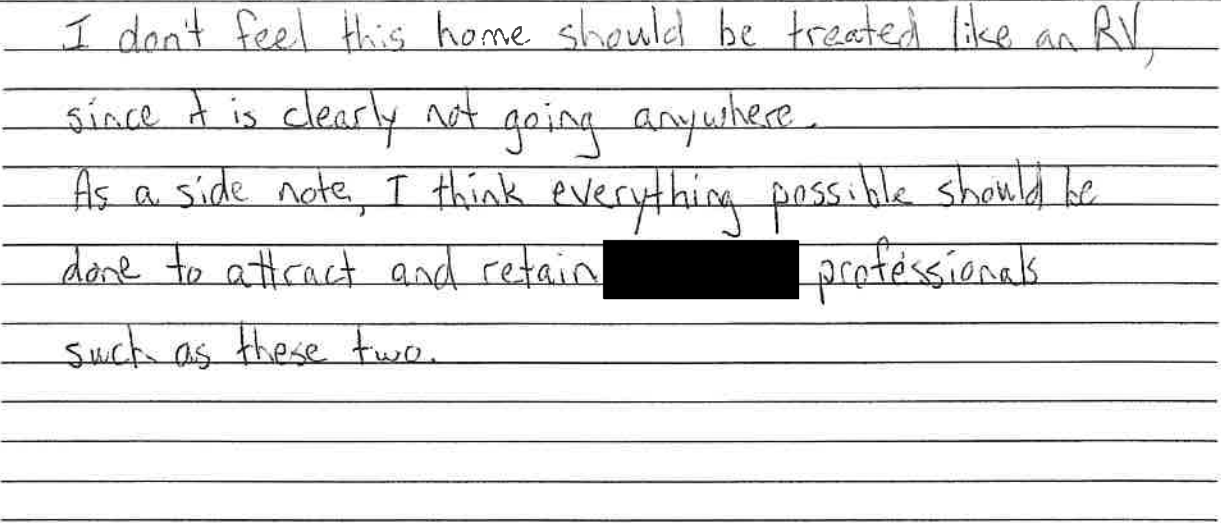 I don't feel this home should be treated like an RV,
since it is clearly not going anywhere.
As a side note, I think everything possible should be
done to attract and retain professionals
such as these two.